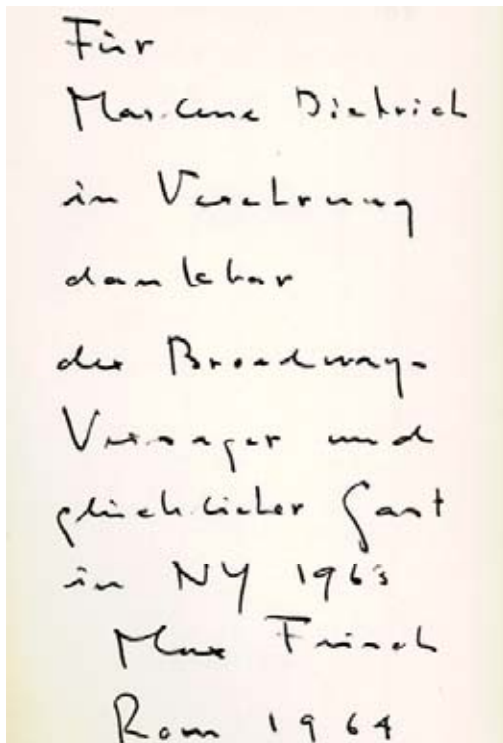 Für
Marlene Dietrich
in Verehrung
dankbar
der Broadway-
Versager und
glücklicher Gast
in NY 1963
Max Frisch
Rom 1964